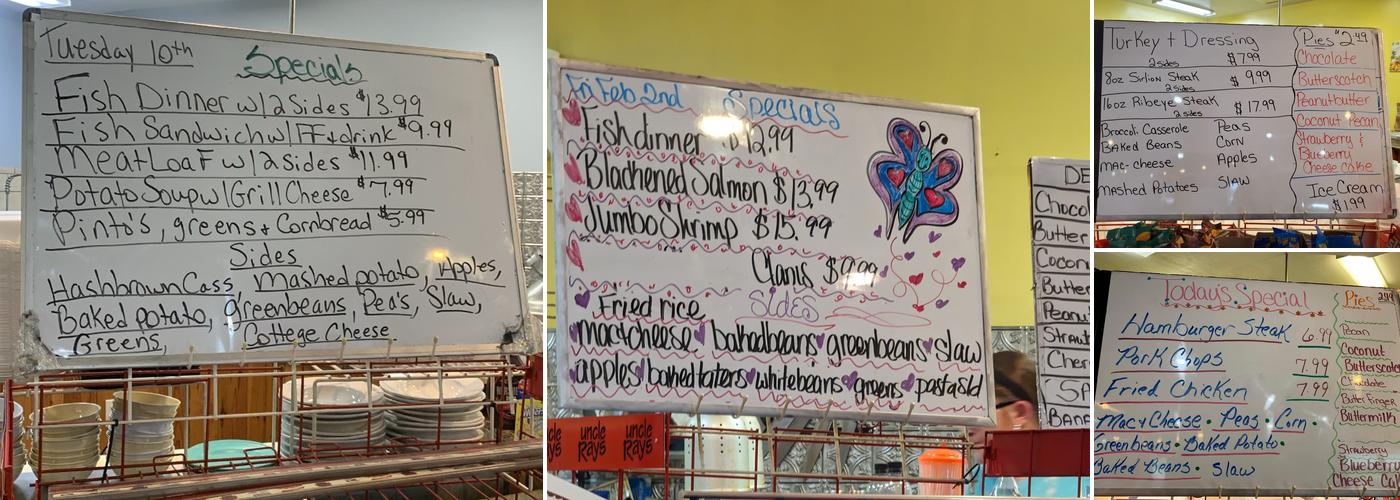 Tuesday 10th
Specials
Fish Dinner w/2 Sides $13.99
Fish Sandwich w/ FF & drink $9.99
MeatLoaF w/2 Sides $11.99
Potato Soup w/ Grill Cheese $7.99
Pinto's, greens + Cornbread $5.99
Sides
HashbrownCass, Mashed potato, Apples,
Baked potato, greenbeans, Pea's, Slaw,
Greens, Cottege Cheese
Fri Feb 2nd Specials
Fish dinner $12.99
Blachened Salmon $13.99
Jumbo Shrimp $15.99
Clams $9.99
SIDES
Fried rice
mac+cheese bakedbeans greenbeans slaw
apples baked taters whitebeans greens pastasld
uncle Rays
uncle Rays
DE
Chocol
Butter
Cocon
Butter
Peanu
Straw
Cher
BANA
Turkey + Dressing
2 sides $7.99
8oz Sirlion Steak $9.99
2 sides
16oz Ribeye Steak $17.99
2 sides
Broccoli Casserole Peas
Baked Beans Corn
Mac-cheese Apples
Mashed Potatoes Slaw
Pies $2.49
Chocolate
Butterscotch
Peanutbutter
Coconut Pecan
Strawberry &
Blueberry
Cheese Cake
Ice Cream
$1.99
Today's Special
Hamburger Steak 6.99
Pork Chops 7.99
Fried Chicken 7.99
Mac+Cheese • Peas • Corn •
Greenbeans • Baked Potato •
Baked Beans • Slaw
Pies 2.49
Pecan
Coconut
Butterscotc
Chocolate
Butter Finger
Buttermilk
Strawberry
Blueberry
Cheese Ca